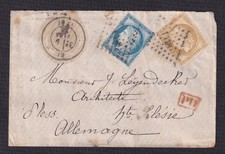 Monsieur J. Leyendecker
Architecte
Pless. Hte Silésie
Allemagne
PD